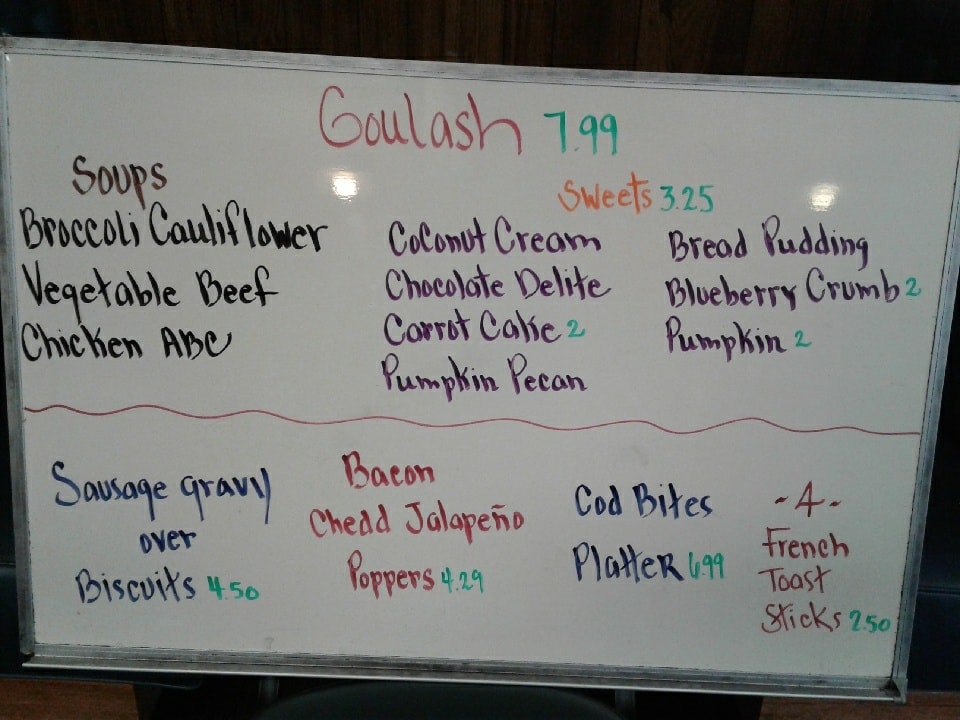 Goulash 7.99
Soups
Broccoli Cauliflower
Vegetable Beef
Chicken ABC
Sweets 3.25
Coconut Cream
Chocolate Delite
Carrot Cake 2
Pumpkin Pecan
Bread Pudding
Blueberry Crumb 2
Pumpkin 2
Sausage gravy
over
Biscuits 4.50
Bacon
Chedd Jalapeño
Poppers 4.29
Cod Bites
Platter 6.99
-4-
French
Toast
Sticks 2.50